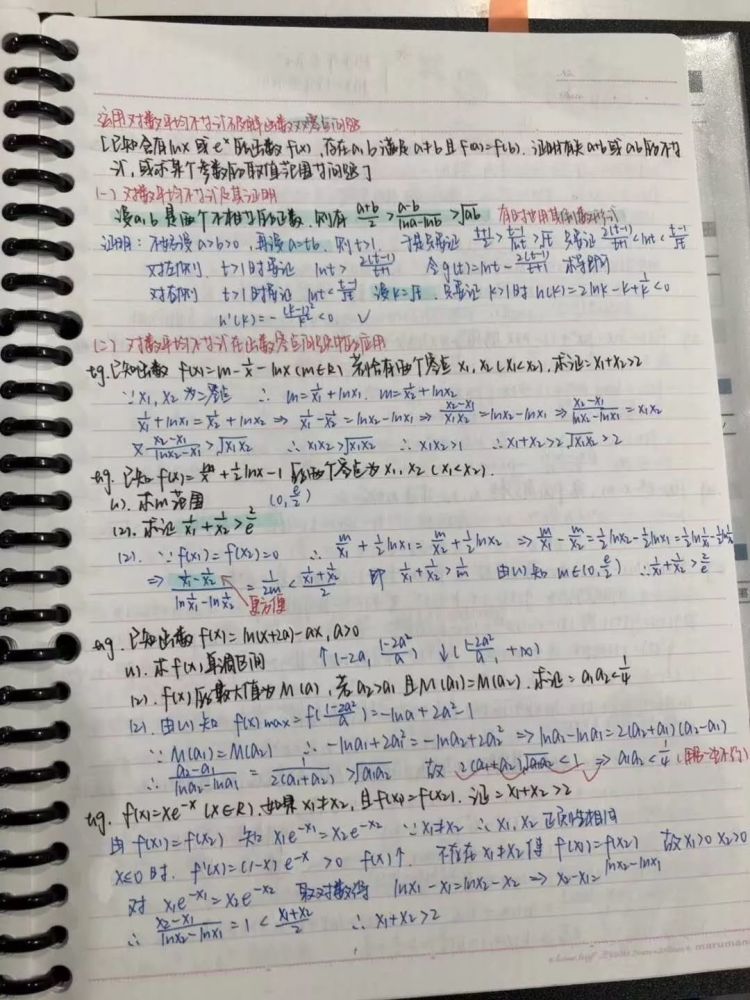 运用对数平均不等式破解函数双零点问题
[已知含有lnx或e^x的函数f(x),存在a,b满足a≠b且f(a)=f(b).证明有关a+b或ab的不等
式,或求某个参数的取值范围等问题]
(一)对数平均不等式及其证明
设a,b是两个不相等的正数,则有 (a+b)/2 > (a-b)/(lna-lnb) > √ab 有时也用其倒数形式
证明:不妨设a>b>0,再设a=tb.则t>1. 于是只需证 (t+1)/2 > (t-1)/lnt > √t 只需证 2(t-1)/(t+1) < lnt < (t-1)/√t
对左侧 t>1时要证 lnt > 2(t-1)/(t+1) 令g(t)=lnt-2(t-1)/(t+1) 求导即可
对右侧 t>1时要证 lnt < (t-1)/√t 设k=√t.只需证 k>1时 h(k)=2lnk-k+1/k<0
h'(k)=-(k-1)²/k²<0. ✓
(二)对数平均不等式在函数零点问题中的应用
eg.已知函数 f(x)=m-1/x-lnx(m∈R)若f(x)有两个零点x₁,x₂(x₁<x₂).求证:x₁+x₂>2
∵x₁,x₂为二零点 ∴ m=1/x₁+lnx₁. m=1/x₂+lnx₂
1/x₁+lnx₁=1/x₂+lnx₂ ⇒ 1/x₁-1/x₂=lnx₂-lnx₁ ⇒ (x₂-x₁)/(x₁x₂)=lnx₂-lnx₁ ⇒ (x₂-x₁)/(lnx₂-lnx₁)=x₁x₂
又 (x₂-x₁)/(lnx₂-lnx₁)>√x₁x₂ ∴x₁x₂>√x₁x₂ ∴x₁x₂>1 ∴x₁+x₂>2√x₁x₂>2
eg.已知f(x)=m/x+½lnx-1的两个零点为x₁,x₂(x₁<x₂).
(1).求m范围 (0,e/2)
(2).求证 1/x₁+1/x₂>2/e
(2).∵f(x₁)=f(x₂)=0 ∴ m/x₁+½lnx₁=m/x₂+½lnx₂ ⇒ m/x₁-m/x₂=½lnx₂-½lnx₁=½ln1/x₁-½ln1/x₂
⇒ (1/x₁-1/x₂)/(ln1/x₁-ln1/x₂) = 1/2m < (1/x₁+1/x₂)/2 即 1/x₁+1/x₂>1/m 由(1)知 m∈(0,e/2) ∴1/x₁+1/x₂>2/e
更方便
eg.已知函数f(x)=ln(x+2a)-ax,a>0
(1).求f(x)单调区间 ↑(-2a,(1-2a²)/a) ↓((1-2a²)/a,+∞)
(2).f(x)的最大值为M(a),若a₂>a₁且M(a₁)=M(a₂).求证:a₁a₂<1/4
(2).由(1)知 f(x)max=f((1-2a²)/a)=-lna+2a²-1
∵M(a₁)=M(a₂) ∴-lna₁+2a₁²=-lna₂+2a₂² ⇒lna₂-lna₁=2(a₂+a₁)(a₂-a₁)
∴ (a₂-a₁)/(lna₂-lna₁) = 1/2(a₁+a₂) > √a₁a₂ 故 2(a₁+a₂)√a₁a₂<1 ⇒a₁a₂<1/4
eg. f(x)=xe^-x(x∈R).如果x₁≠x₂,且f(x₁)=f(x₂).证:x₁+x₂>2
由f(x₁)=f(x₂) 知 x₁e^-x₁=x₂e^-x₂ ∵x₁≠x₂ ∴x₁,x₂正负性相同
x≤0时. f'(x)=(1-x)e^-x>0 f(x)↑. 不存在x₁≠x₂使f(x₁)=f(x₂) 故x₁>0 x₂>0
对 x₁e^-x₁=x₂e^-x₂ 取对数得 lnx₁-x₁=lnx₂-x₂ ⇒ x₂-x₁=lnx₂-lnx₁
∴ (x₂-x₁)/(lnx₂-lnx₁)=1<(x₁+x₂)/2 ∴x₁+x₂>2
maruman